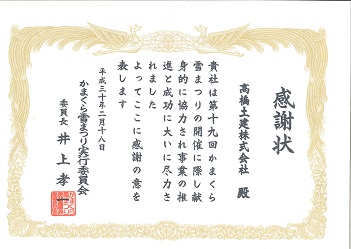 感謝状
高橋土建株式会社 殿
貴社は第十九回かまくら
雪まつりの開催に際し献
身的に協力され事業の推
進と成功に大いに尽力さ
れました
よってここに感謝の意を
表します
平成三十年二月十八日
かまくら雪まつり実行委員会
委員長 井上孝一